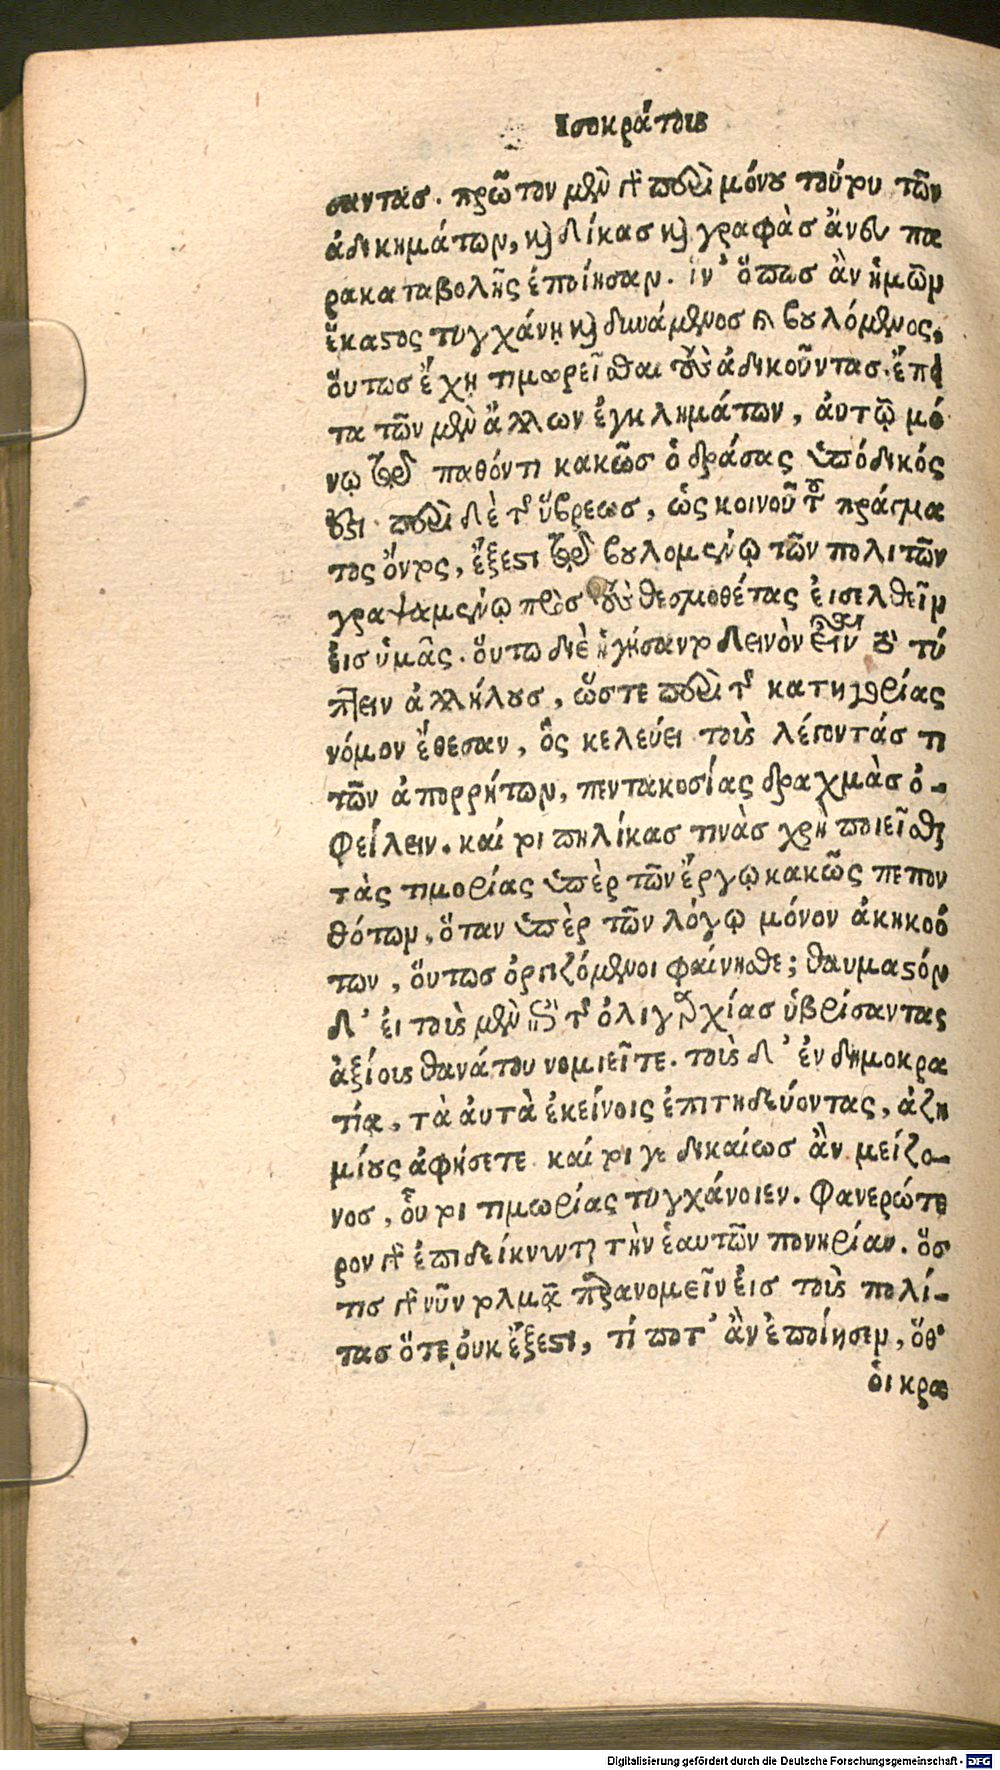 Ισοκράτους
σαντας. πρῶτον μὲν γὰρ περὶ μόνου τούτου τῶν
ἀδικημάτων, καὶ δίκας καὶ γραφὰς ἄνευ πα
ρακαταβολῆς ἐποίησαν. ἵν' ὅπως ἂν ἡμῶν
ἕκαστος τυγχάνῃ καὶ δυνάμενος καὶ βουλόμενος,
οὕτως ἔχῃ τιμωρεῖσθαι τοὺς ἀδικοῦντας. ἔπει
τα τῶν μὲν ἄλλων ἐγκλημάτων, αὐτῷ μό
νῳ τῷ παθόντι κακῶς ὁ δράσας ὑπόδικός
ἐστι. περὶ δὲ τῆς ὕβρεως, ὡς κοινοῦ τοῦ πράγμα
τος ὄντος, ἔξεστι τῷ βουλομένῳ τῶν πολιτῶν
γραψαμένῳ πρὸς τοὺς θεσμοθέτας ἐισελθεῖν
ἐις ὑμᾶς. οὕτω δὲ ἡγήσαντο δεινὸν εἶναι τὸ τύ
πτειν ἀλλήλους, ὥστε περὶ τῆς κατηγορίας
νόμον ἔθεσαν, ὃς κελεύει τοὺς λέγοντάς τι
τῶν ἀπορρήτων, πεντακοσίας δραχμὰς ὀ-
φείλειν. καί τοι πηλίκας τινὰς χρὴ ποιεῖσθαι
τὰς τιμορίας ὑπὲρ τῶν ἔργῳ κακῶς πεπον
θότων, ὅταν ὑπὲρ τῶν λόγῳ μόνον ἀκηκοό
των, οὕτως ὀργιζόμενοι φαίνησθε; θαυμαστόν
δ' ἐι τοὺς μὲν ἐπὶ τῆς ὀλιγαρχίας ὑβρίσαντας
ἀξίους θανάτου νομιεῖτε. τοὺς δ' ἐν δημοκρα
τίᾳ, τὰ ἀυτὰ ἐκείνοις ἐπιτηδεύοντας, ἀζη
μίους ἀφήσετε καί τοι γε δικαίως ἂν μείζο-
νος, οὗτοι τιμωρίας τυγχάνοιεν. Φανερώτε
ρον γὰρ ἐπιδείκνυνται τὴν ἑαυτῶν πονηρίαν. ὅσ
τις γὰρ νῦν τολμᾷ παρανομεῖν ἐις τοὺς πολί-
τας ὅτε ὀυκ ἔξεστι, τί ποτ' ἂν ἐποίησεν, ὅθ'
ὁι κρα
Digitalisierung gefördert durch die Deutsche Forschungsgemeinschaft - DFG